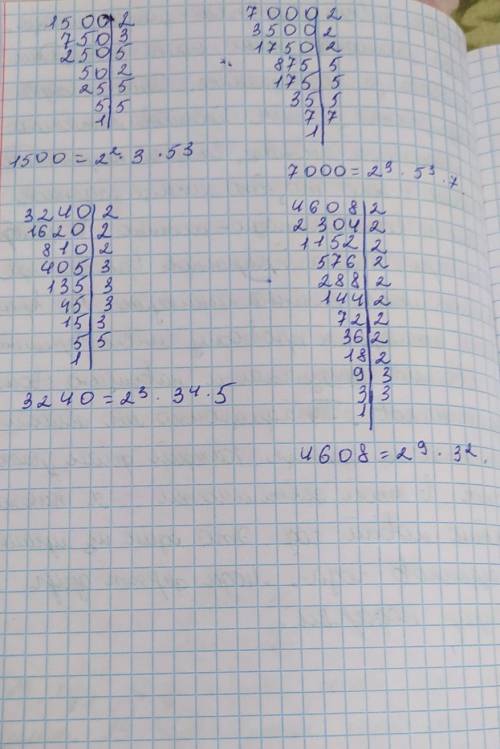 1500|2
750|3
250|5
50|2
25|5
5|5
1|
1500=2². 3 . 5³
7000|2
3500|2
1750|2
875|5
175|5
35|5
7|7
1|
7000=2³. 5³. 7.
3240|2
1620|2
810|2
405|3
135|3
45|3
15|3
5|5
1|
3240=2³. 3⁴. 5
4608|2
2304|2
1152|2
576|2
288|2
144|2
72|2
36|2
18|2
9|3
3|3
1|
4608=2⁹. 3².